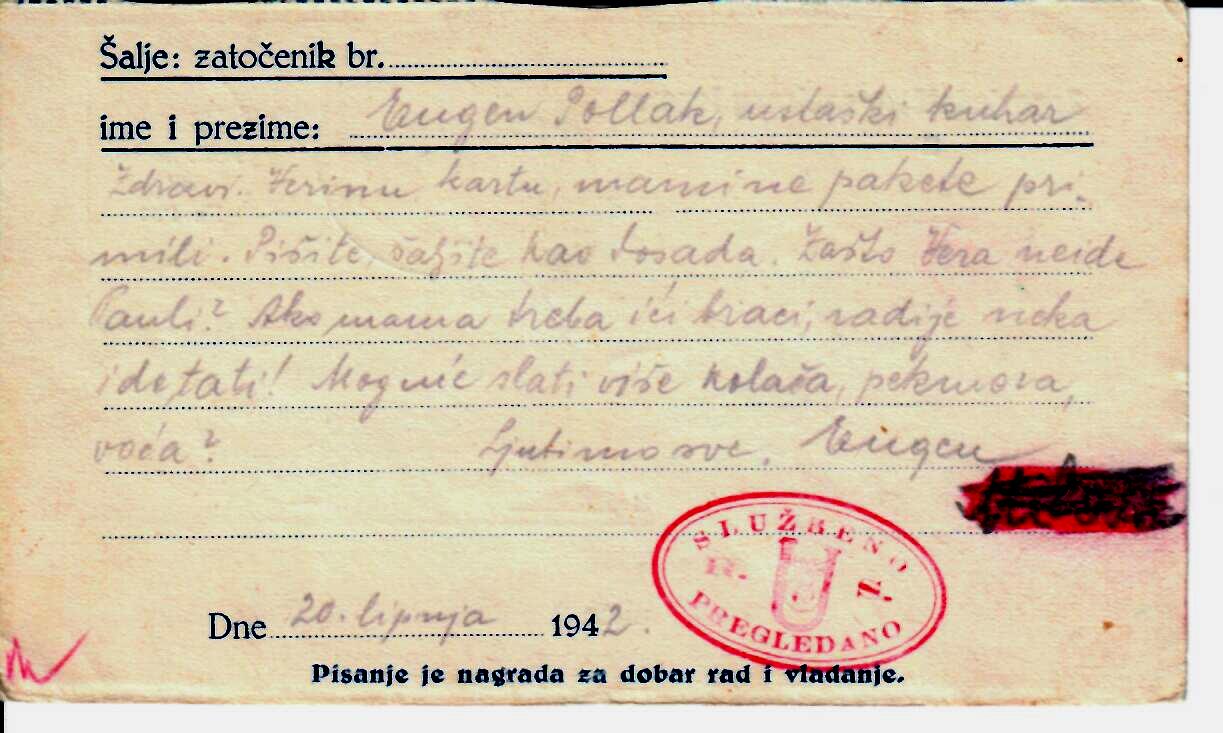 Šalje: zatočenik br.
ime i prezime: Eugen Pollak, ustaški kuhar
Zdravi. Verinu kartu, mamine pakete pri-
mili. Pišite, šaljite kao dosada. Zašto Vera neide
Pauli? Ako mama treba ići braci, radije neka
ide tati! Moguće slati više kolača, pekmeza,
voća? Ljubimo sve, Eugen
SLUŽBENO
Z.
PREGLEDANO
Dne 20. lipnja 1942.
Pisanje je nagrada za dobar rad i vladanje.